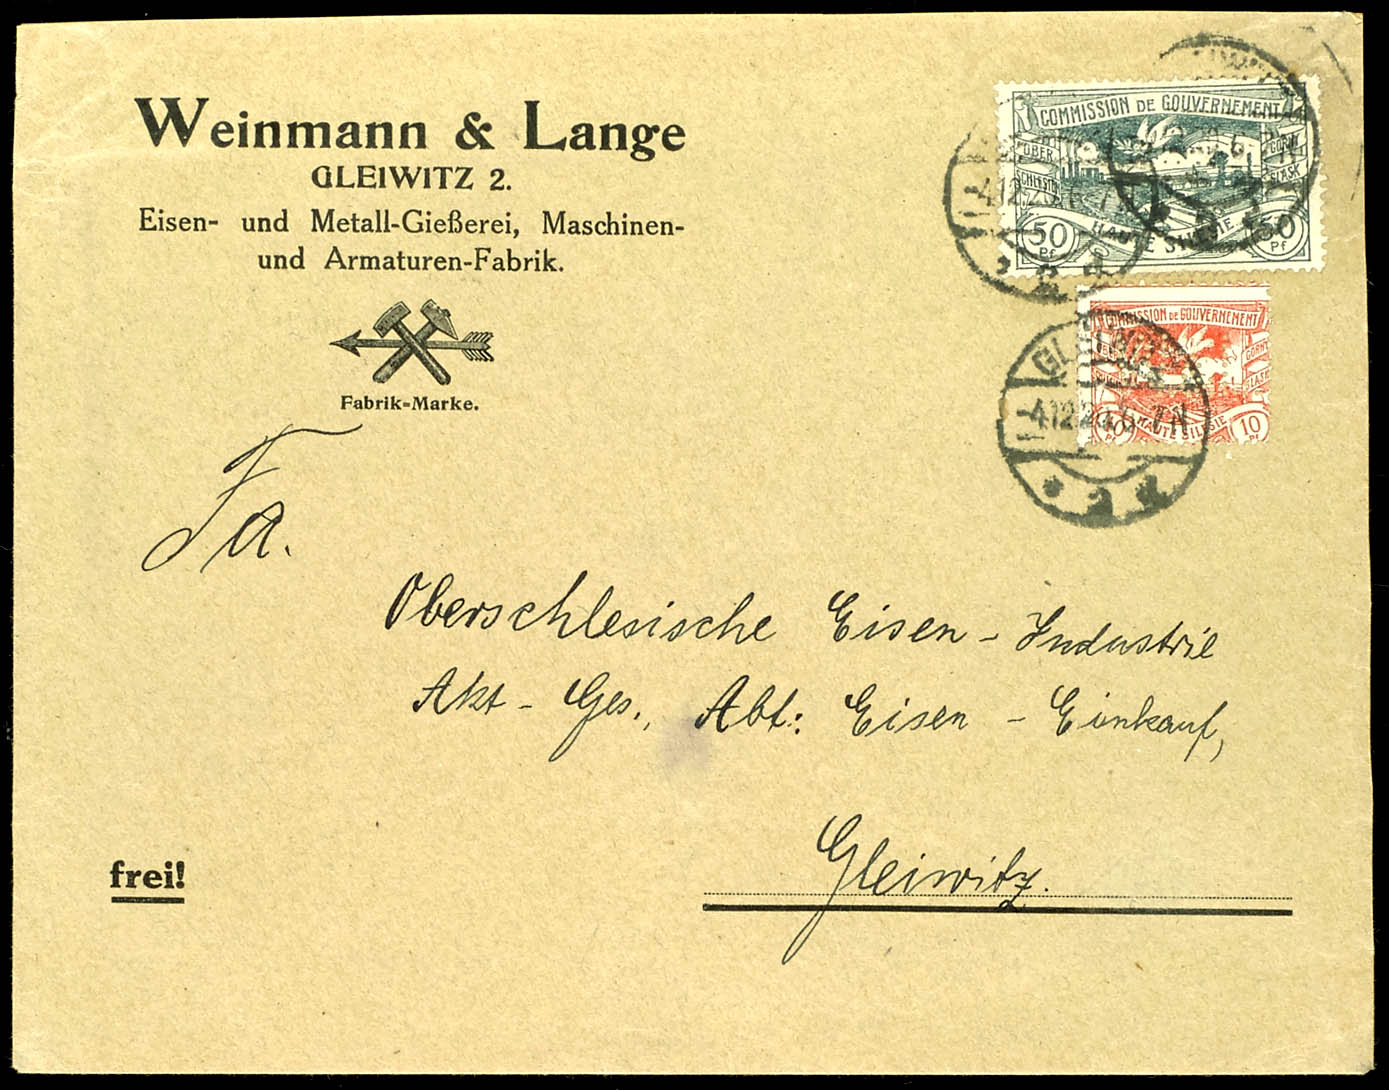 Weinmann & Lange
GLEIWITZ 2.
Eisen- und Metall-Gießerei, Maschinen-
und Armaturen-Fabrik.
Fabrik-Marke.
COMMISSION DE GOUVERNEMENT
OBER SCHLESIEN
GORNY ŚLĄSK
50 Pf
HAUTE SILESIE
50 Pf
4.12.20.6-7N
COMMISSION DE GOUVERNEMENT
GORNY ŚLĄSK
10 Pf
HAUTE SILESIE
10 Pf
GLEIWITZ
4.12.20.6-7N
Fa.
Oberschlesische Eisen-Industrie
Akt-Ges., Abt: Eisen-Einkauf,
Gleiwitz.
frei!